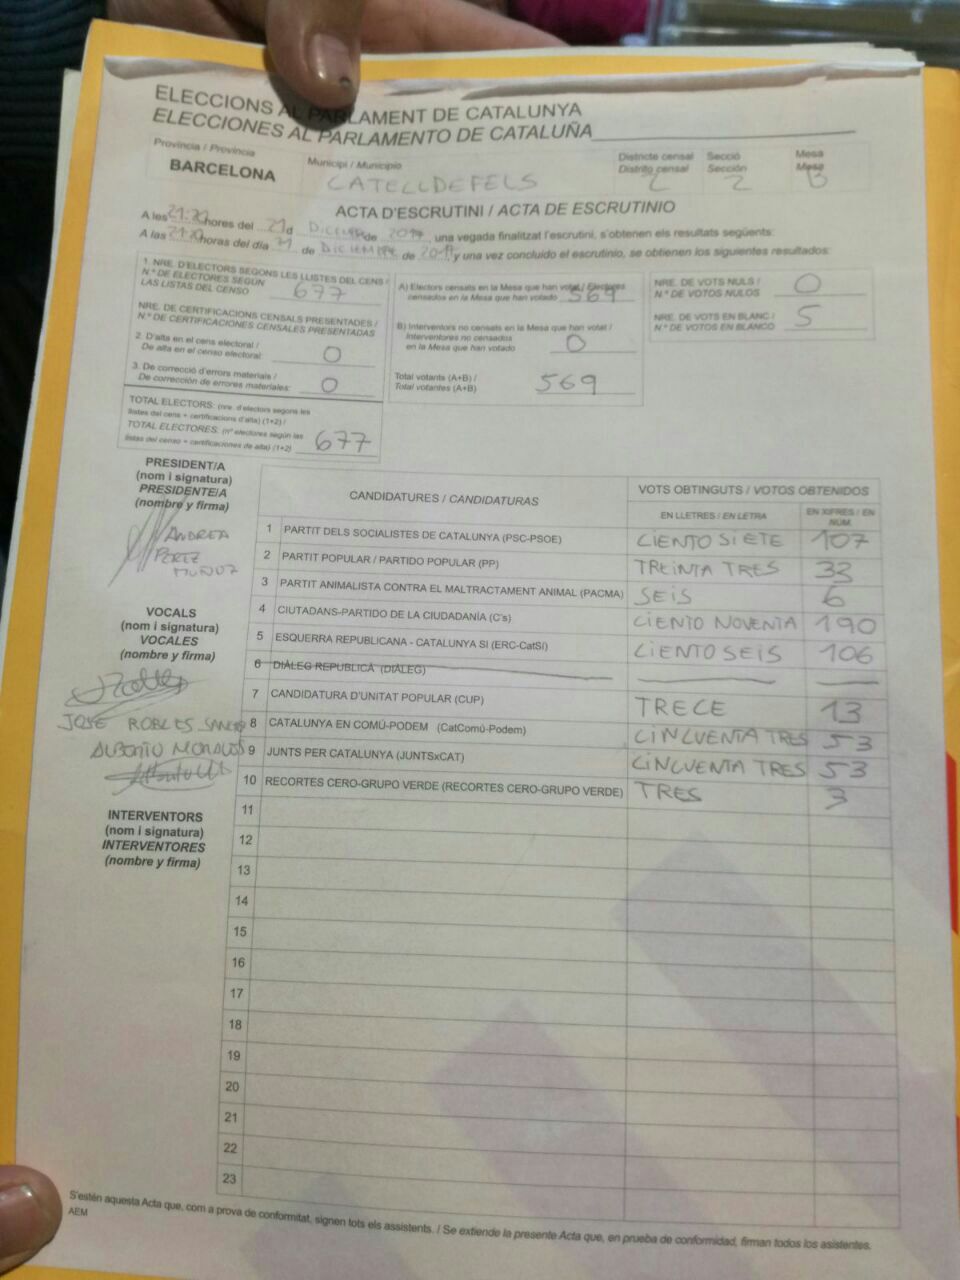 ELECCIONS AL PARLAMENT DE CATALUNYA
ELECCIONES AL PARLAMENTO DE CATALUÑA
Província / Provincia
BARCELONA
Municipi / Municipio
CATELLDEFELS
Districte censal
Distrito censal
2
Secció
Sección
2
Mesa
Mesa
B
ACTA D'ESCRUTINI / ACTA DE ESCRUTINIO
A les 21:20 hores del 21 d DICIEMBRE de 2017, una vegada finalitzat l'escrutini, s'obtenen els resultats següents:
A las 21:20 horas del día 21 de DICIEMBRE de 2017 y una vez concluido el escrutinio, se obtienen los siguientes resultados:
1. NRE. D'ELECTORS SEGONS LES LLISTES DEL CENS /
N.º DE ELECTORES SEGÚN
LAS LISTAS DEL CENSO 677
NRE. DE CERTIFICACIONS CENSALS PRESENTADES /
N.º DE CERTIFICACIONES CENSALES PRESENTADAS
2. D'alta en el cens electoral /
De alta en el censo electoral: 0
3. De correcció d'errors materials /
De corrección de errores materiales: 0
TOTAL ELECTORS: (nre. d'electors segons les
llistes del cens + certificacions d'alta) (1+2) /
TOTAL ELECTORES: (nº electores según las
listas del censo + certificaciones de alta) (1+2) 677
A) Electors censats en la Mesa que han votat / Electores
censados en la Mesa que han votado 569
B) Interventors no censats en la Mesa que han votat /
Interventores no censados
en la Mesa que han votado 0
Total votants (A+B) /
Total votantes (A+B) 569
NRE. DE VOTS NULS /
N.º DE VOTOS NULOS 0
NRE. DE VOTS EN BLANC /
N.º DE VOTOS EN BLANCO 5
PRESIDENT/A
(nom i signatura)
PRESIDENTE/A
(nombre y firma)
ANDREA
PEREZ
MUÑOZ
VOCALS
(nom i signatura)
VOCALES
(nombre y firma)
JOSE ROBLES
ALBERTO
INTERVENTORS
(nom i signatura)
INTERVENTORES
(nombre y firma)
CANDIDATURES / CANDIDATURAS
VOTS OBTINGUTS / VOTOS OBTENIDOS
EN LLETRES / EN LETRA
EN XIFRES / EN NÚM.
1 PARTIT DELS SOCIALISTES DE CATALUNYA (PSC-PSOE) CIENTO SIETE 107
2 PARTIT POPULAR / PARTIDO POPULAR (PP) TREINTA TRES 33
3 PARTIT ANIMALISTA CONTRA EL MALTRACTAMENT ANIMAL (PACMA) SEIS 6
4 CIUTADANS-PARTIDO DE LA CIUDADANÍA (C's) CIENTO NOVENTA 190
5 ESQUERRA REPUBLICANA - CATALUNYA SI (ERC-CatSí) CIENTO SEIS 106
6 DIÀLEG REPUBLICÀ (DIÀLEG)
7 CANDIDATURA D'UNITAT POPULAR (CUP) TRECE 13
8 CATALUNYA EN COMÚ-PODEM (CatComú-Podem) CINCUENTA TRES 53
9 JUNTS PER CATALUNYA (JUNTSxCAT) CINCUENTA TRES 53
10 RECORTES CERO-GRUPO VERDE (RECORTES CERO-GRUPO VERDE) TRES 3
11
12
13
14
15
16
17
18
19
20
21
22
23
S'estén aquesta Acta que, com a prova de conformitat, signen tots els assistents. / Se extiende la presente Acta que, en prueba de conformidad, firman todos los asistentes.
AEM